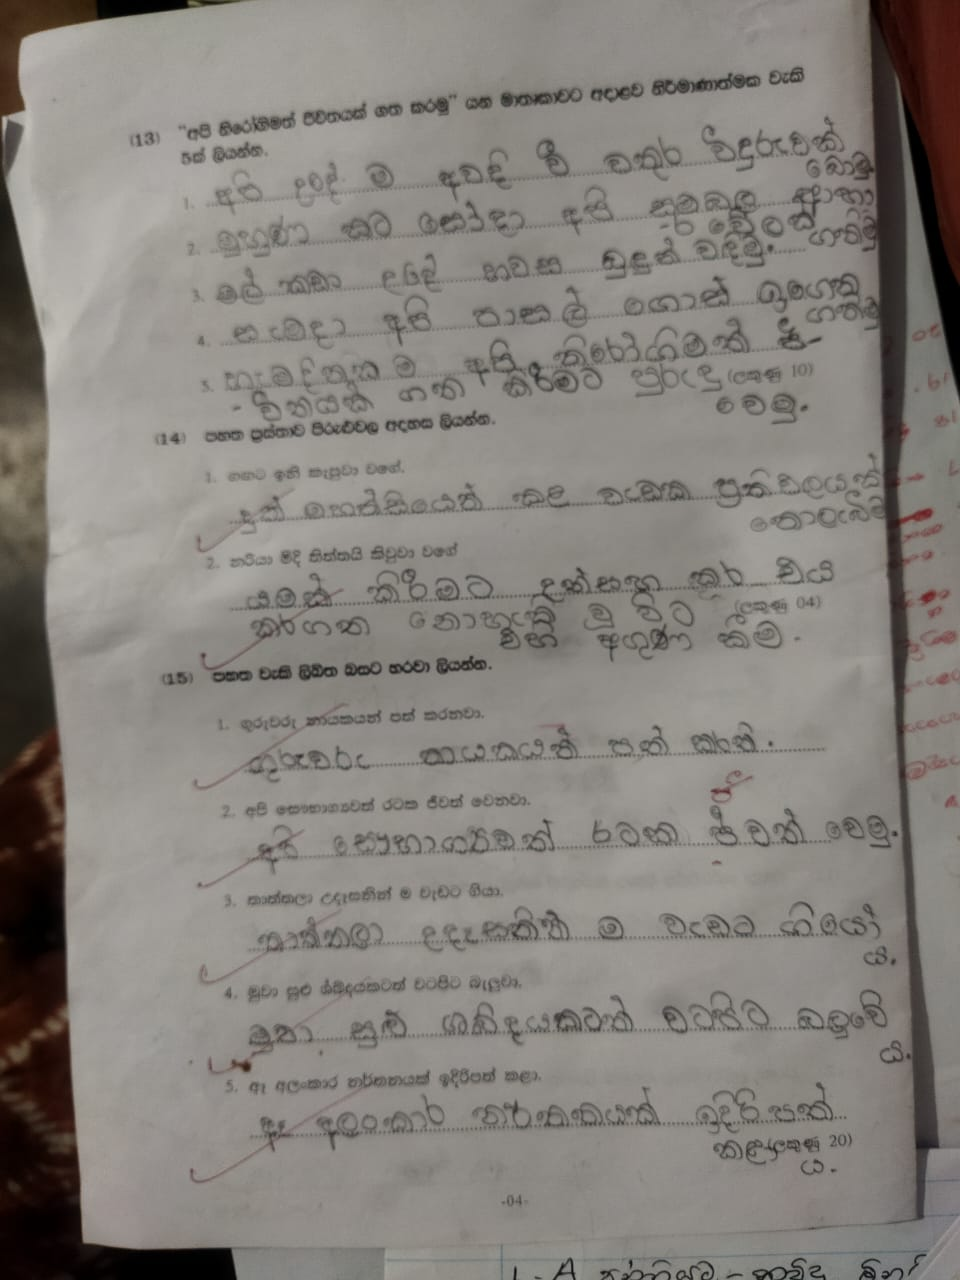 (13) "අපි නිරෝගිමත් ජීවිතයක් ගත කරමු" යන මාතෘකාවට අදාළව නිර්මාණාත්මක වැකි
5ක් ලියන්න.
1. අපි උදේ ම අවදි වී වතුර වීදුරුවක්
බොමු.
2. මුහුණ කට සෝදා අපි
ගනිමු
3. මල් කඩා උදේ හවස බුදුන් වඳිමු.
4. සැමදා අපි පාසල් ගොස් ඉගෙන
ගනිමු
5. හැමදිනක ම අපි නිරෝගිමත් ජී-
-විතයක් ගත කිරීමට පුරුදු (ලකුණු 10)
වෙමු.
(14) පහත ප්‍රස්තාව පිරුළුවල අදහස ලියන්න.
1. ගඟට ඉනි කැපුවා වගේ.
දුක් මහන්සියෙන් කළ වැඩක ප්‍රතිඵලයක්
නොලැබීම
2. නරියා මිදි තිත්තයි කිවුවා වගේ
යමක් කිරීමට උත්සහ කර එය
කරගත නොහැකි වු විට (ලකුණු 04)
එහි අගුණ කීම.
(15) පහත වැකි ලිඛිත බසට හරවා ලියන්න.
1. ගුරුවරු නායකයන් පත් කරනවා.
ගුරුවරු නායකයන් පත් කරති.
2. අපි සෞභාග්‍යවත් රටක ජීවත් වෙනවා.
අපි සෞභාග්‍යවත් රටක ජීවත් වෙමු.
ජී
3. තාත්තලා උදෑසනින් ම වැඩට ගියා.
තාත්තලා උදෑසනින් ම වැඩට ගියෝ
ය.
4. මුවා සුළු ශබ්දයකටත් වටපිට බැලුවා.
මුවා සුළු ශබ්දයකටත් වටපිට බැලුවේ
ය.
5. ඈ අලංකාර නර්තනයක් ඉදිරිපත් කළා.
ඈ අලංකාර නර්තනයක් ඉදිරිපත්
කළා (ලකුණු 20)
ය.
-04-